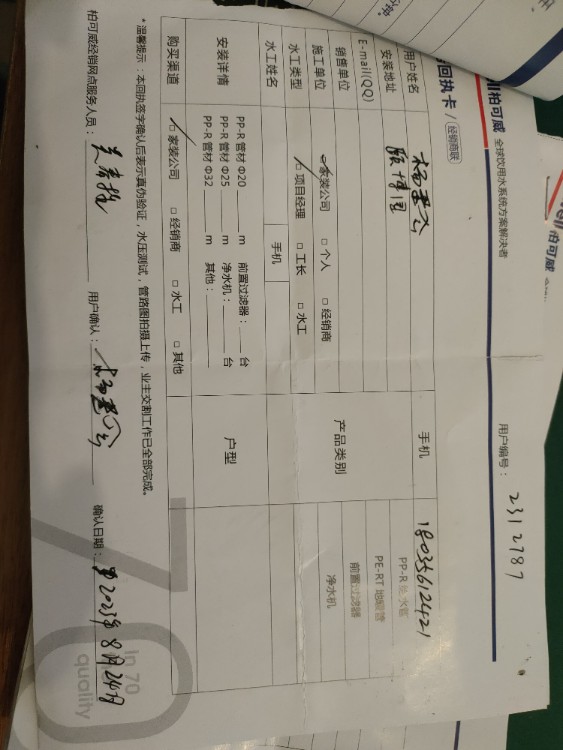 柏可威 全球饮用水系统方案解决者
回执卡 / 经销商联
用户编号： 2312787
用户姓名
手机 18035612421
安装地址 颐博园
E-mail(QQ)
销售单位
施工单位 家装公司 □ 个人 □ 经销商
水工类型 项目经理 □ 工长 □ 水工
产品类别
PP-R
PE-RT 地暖管
前置过滤器
净水机
水工姓名 手机
安装详情
PP-R 管材 Φ20 m 前置过滤器： 台
PP-R 管材 Φ25 m 净水机： 台
PP-R 管材 Φ32 m 其他：
户型
购买渠道 家装公司 □ 经销商 □ 水工 □ 其他
*温馨提示：本回执签字确认后表示真伪验证，水压测试，管路图拍摄上传，业主交割工作已全部完成。
柏可威经销网点服务人员： 用户确认： 确认日期： 2023年8月24日
In 70
quality
柏可威